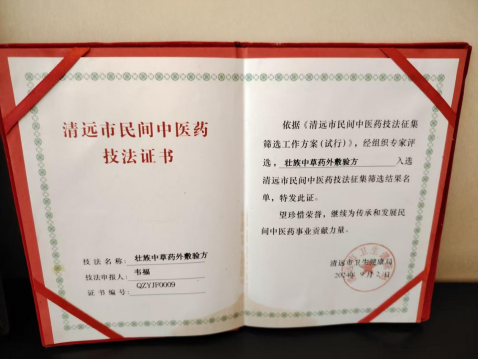 清远市民间中医药
技法证书
技法名称：壮族中草药外敷验方
技法申报人：韦福
证书编号：QZYJF0009
依据《清远市民间中医药技法征集
筛选工作方案(试行)》，经组织专家评
选，壮族中草药外敷验方 入选
清远市民间中医药技法征集筛选结果名
单，特发此证。
望珍惜荣誉，继续为传承和发展民
间中医药事业贡献力量。
清远市卫生健康局